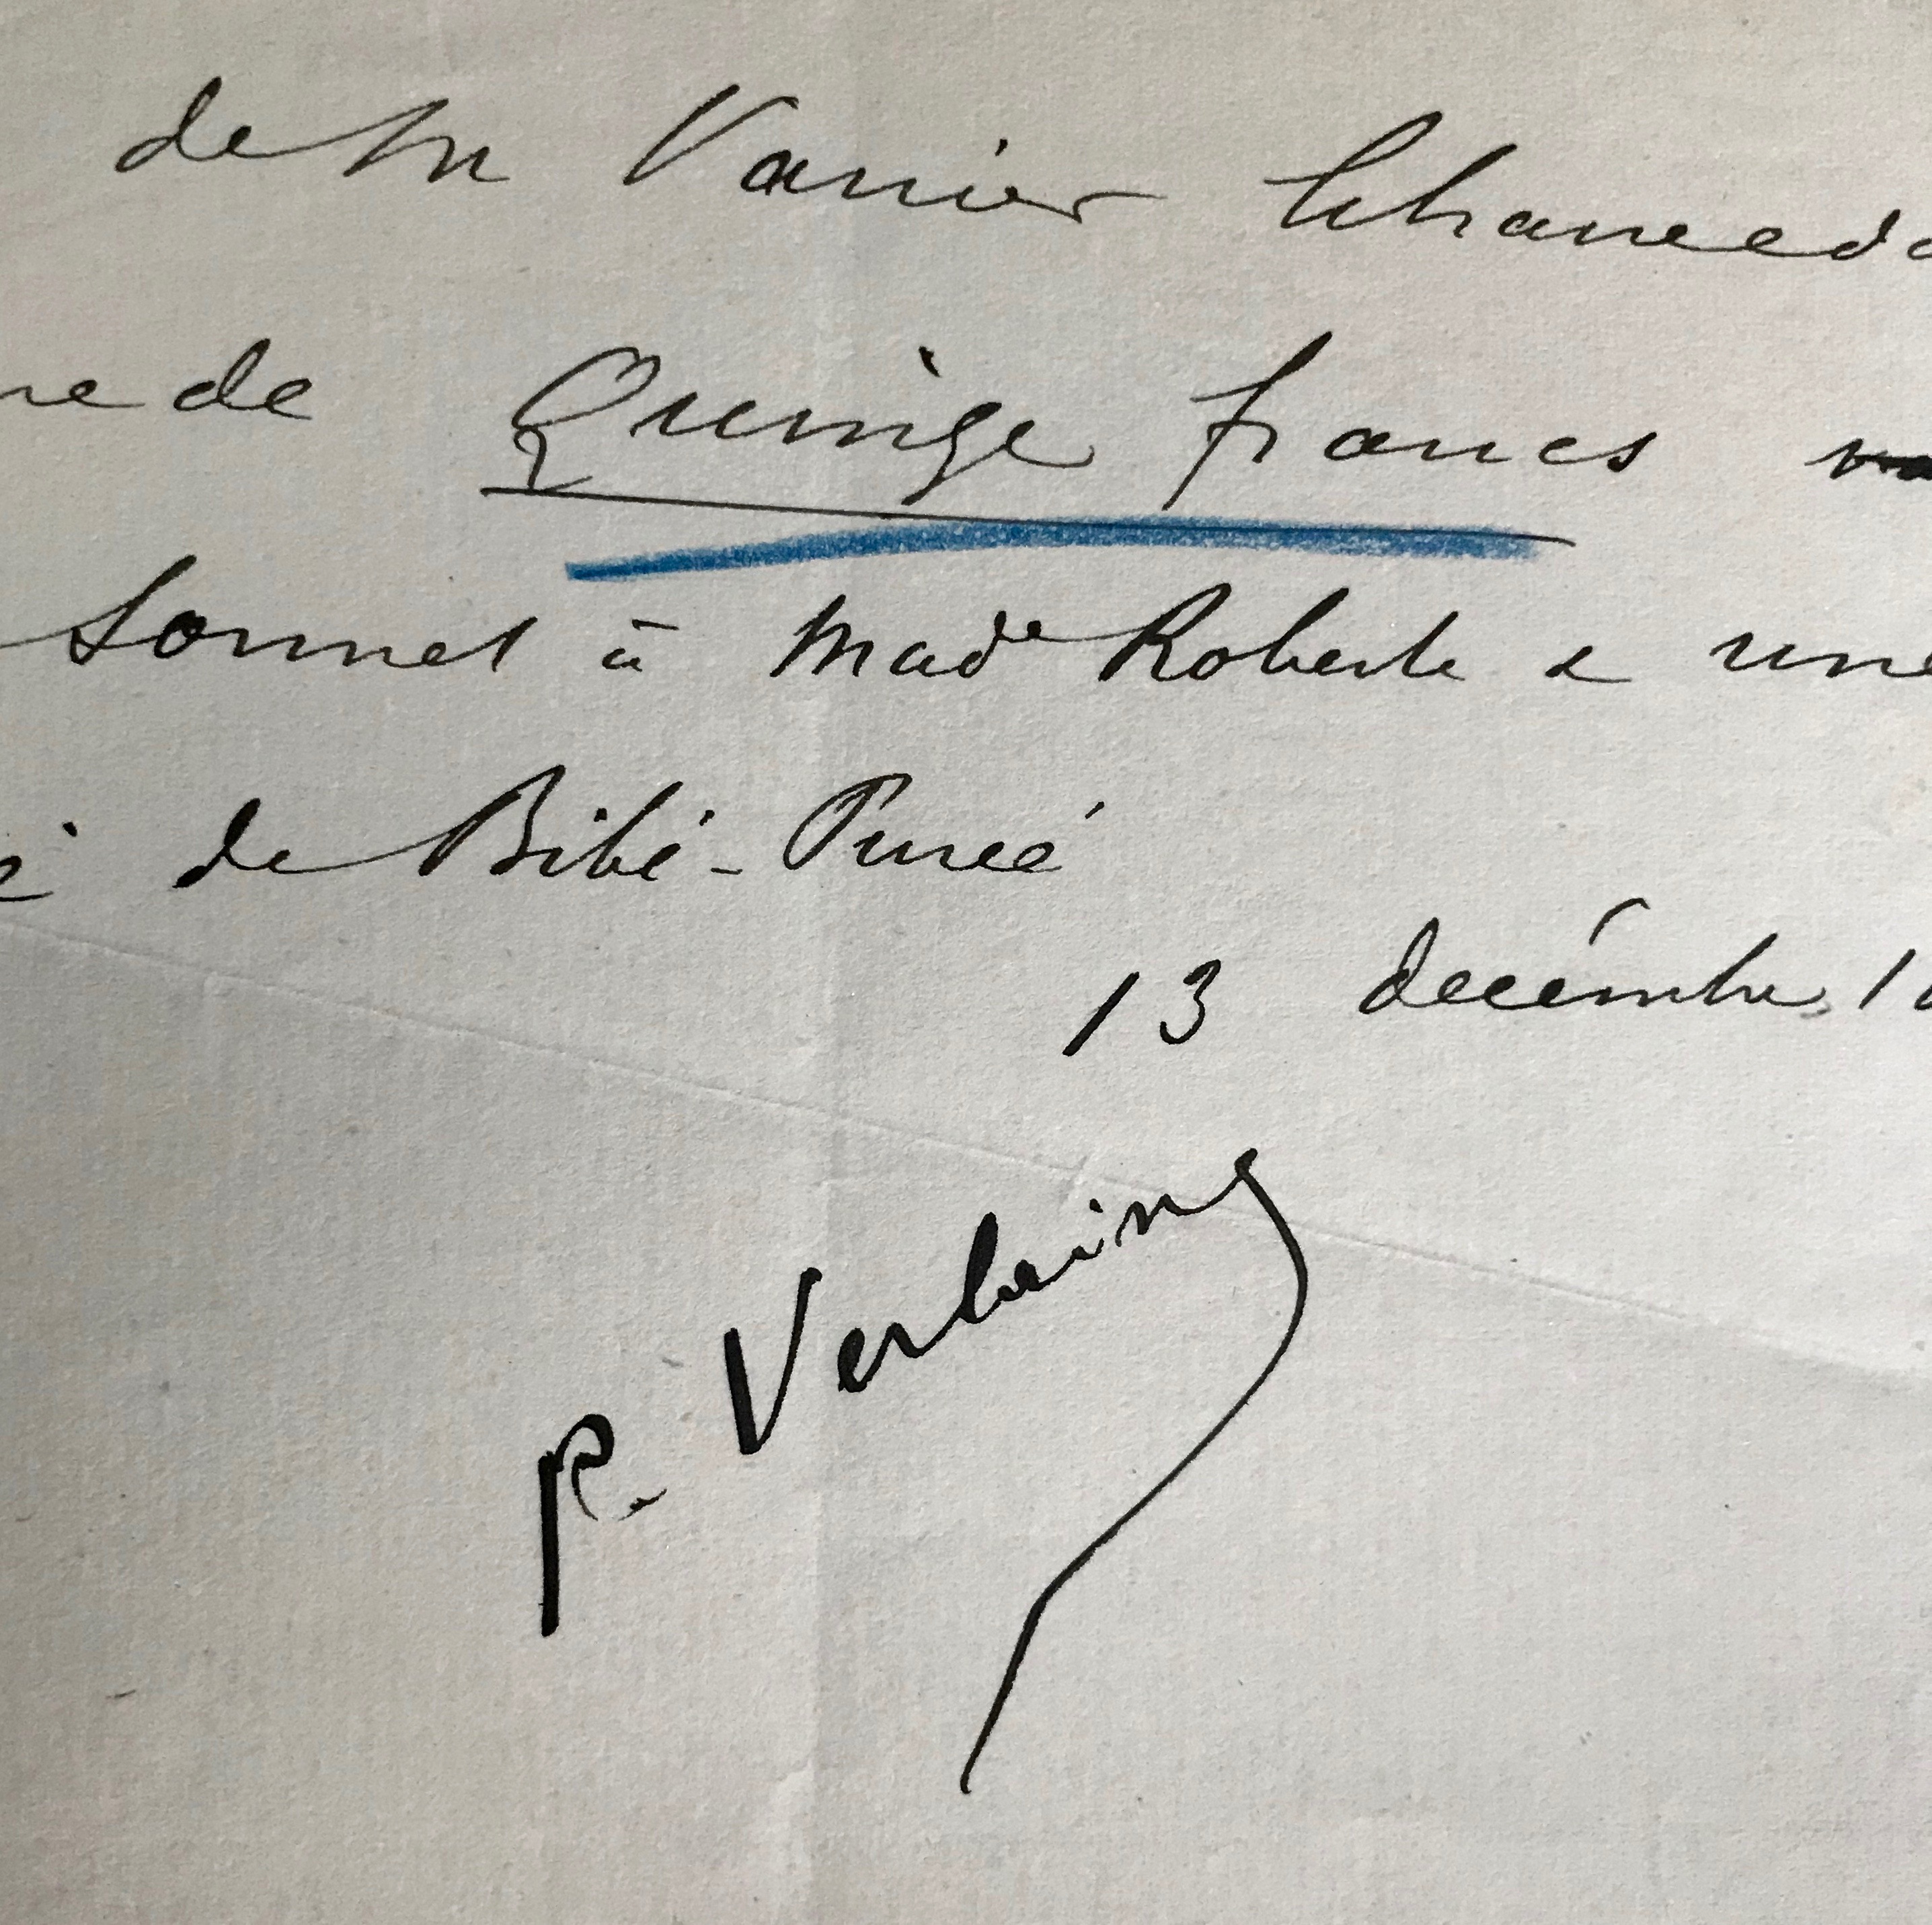 de M Vanier
de Quinze francs
Sonnet à Made Roberte & une
de Bibi-Purée
13 décembre 1
P. Verlaine